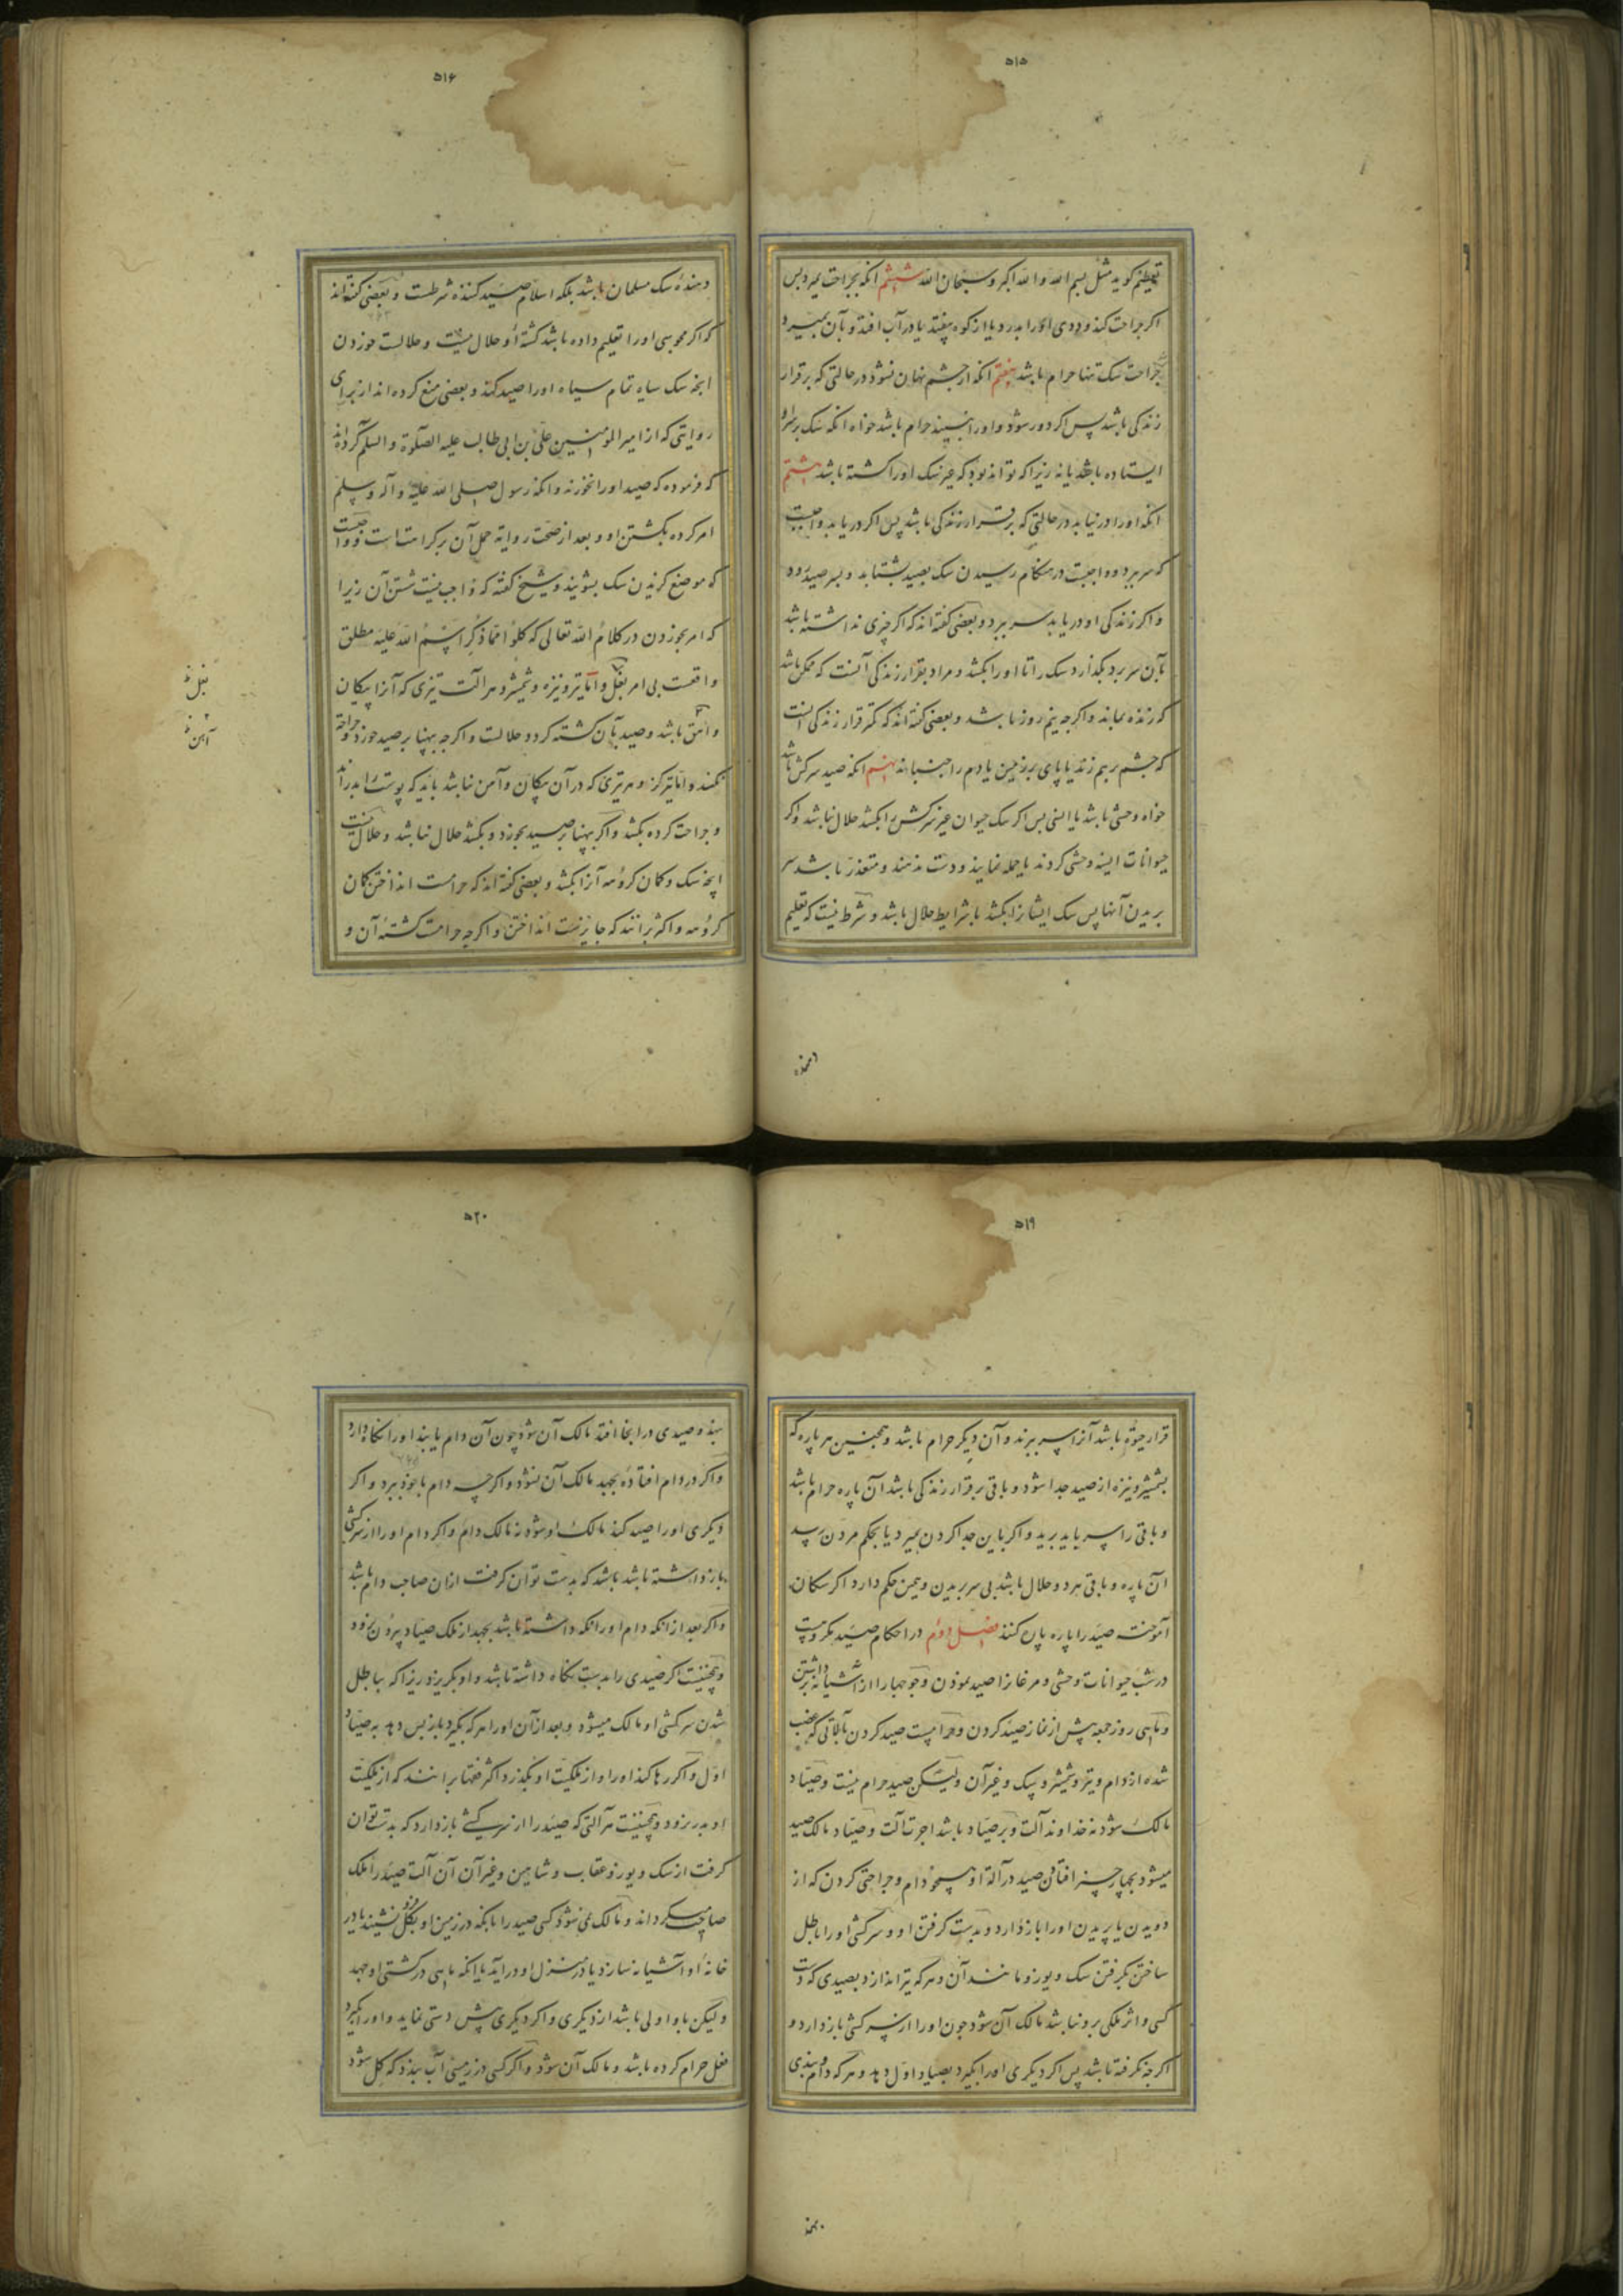 ۵۱۵
تعظیم کوید مثل بسم الله و الله اکبر و سبحان الله ششم انکه بجراحت بمیرد پس
اکر جراحت کند و ددی اورا بدرد یا از کوه بیفتد یا در آب افتد و بآن بمیرد
جراحت سک تنها حرام باشد هفتم انکه از چشم نهان نشود در حالتی که برقرار
زندکی باشد پس اکر دور شود و اورا نبیند حرام باشد خواه انکه سک بر سر او
ایستاده باشد یا نه زیرا که تواند بود که غیر سک اورا کشته باشد هشتم
انکه اورا در نیابد در حالتی که برقرار زندکی باشد پس اکر دریابد واجبست
که سر برد و واجبست در هنکام رسیدن سک بصید بشتابد و بسر صید رود
و اکر زندکی او دریابد سر برد و بعضی کفته اند که اکر چیزی نداشته باشد
بآن سر برد بکذارد سک را تا اورا بکشد و مراد بقرار زندکی آنست که ممکن باشد
که زنده بماند و اکرچه نیم روز باشد و بعضی کفته اند که کمتر قرار زندکی انست
که چشم برهم زند یا پای بر زمین یا دم را جنباند نهم انکه صید سرکش باشد
خواه وحشی باشد یا انسی پس اکر سک حیوان غیر سرکش را بکشد حلال نباشد و اکر
حیوانات انسیه وحشی کردند یا حمله نمایند و دست ندهند و متعذر باشد سر
بریدن آنها پس سک ایشانرا بکشد با شرایط حلال باشد و شرط نیست که تعلیم
دهنده
۵۱۶
دهندهٔ سک مسلمان باشد بلکه اسلام صید کننده شرطست و بعضی کفته اند
که اکر مجوسی اورا تعلیم داده باشد کشتهٔ او حلال نیست و حلالست خوردن
انچه سک سیاه تمام سیاه اورا صید کند و بعضی منع کرده اند از برای
روایتی که از امیر المومنین علی بن ابی طالب علیه الصلوة والسلم کرده اند
که فرموده که صید اورا نخورند و انکه رسول صلی الله علیه و آله و سلم
امر کرده بکشتن او و بعد از صحت روایه حمل آن بر کراهتست و واجبست
که موضع کزیدن سک بشویند و شیخ کفته که واجب نیست شستن آن زیرا
که امر بخوردن در کلام الله تعالی که کلوا مما ذکر اسم الله علیه مطلق
واقعست بی امر بغسل و اما تیر و نیزه و شمشیر و هر آلت تیزی که آنرا پیکان
و آهن باشد و صید بآن کشته کردد حلالست و اکرچه بپهنا بر صید خورد و جراحة
نکند و اما تیر کز و هر تیری که در آن پیکان و آهن نباشد باید که پوست را بدراند
و جراحت کرده بکشد و اکر بپهنا بر صید بخورد و بکشد حلال نباشد و حلال نیست
انچه سک و کمان کروهه آنرا بکشد و بعضی کفته اند که حرامست انداختن کمان
کروهه و اکثر برانند که جایزست انداختن و اکرچه حرامست کشتهٔ آن و
بغسل
آهن
۵۱۹
قرار حیوة باشد آنرا سر ببرند و آن دیکر حرام باشد و همچنین هر پاره که
بشمشیر و نیزه از صید جدا شود و باقی برقرار زندکی باشد آن پاره حرام باشد
و باقی را سر باید برید و اکر باین جدا کردن بمیرد یا بحکم مردن رسد
آن پاره و باقی هر دو حلال باشد بی سر بریدن و همین حکم دارد اکر سکان
آموخته صید را پاره پاره کنند فصل دوم در احکام صید مکروهست
در شب حیوانات وحشی و مرغانرا صید نمودن و جوجها را از آشیانه برداشتن
و ماهی روز جمعه پیش از نماز صید کردن و حرامست صید کردن بآلاتی که غصب
شده از دام و تیر و شمشیر و سک و غیر آن ولیکن صید حرام نیست و صیاد
مالک شود نه خداوند آلت و بر صیاد باشد اجرت آلت و صیاد مالک صید
میشود بچهار چیز افتادن صید در آلة او همچو دام و جراحتی کردن که از
دویدن یا پریدن اورا باز دارد و بدست کرفتن او و سرکشی اورا باطل
ساختن بکرفتن سک و یوز و مانند آن و هر که تیر اندازد بصیدی که دست
کسی و اثر ملکی برو نباشد مالک آن شود چون اورا از سرکشی باز دارد و
اکرچه نکرفته باشد پس اکر دیکری اورا بکیرد بصیاد اول دهد و هر که دام و بندی
بنهد
۵۲۰
بنهد و صیدی در انجا افتد مالک آن شود چون آن دام یا بند اورا نکاه دارد
و اکر در دام افتاده بجهد مالک آن نشود و اکرچه دام با خود ببرد و اکر
دیکری اورا صید کند مالک او شود نه مالک دام و اکر دام اورا از سرکشی
باز داشته باشد باشد که بدست توان کرفت ازان صاحب دام باشد
و اکر بعد از انکه دام اورا نکه داشته باشد بجهد از ملک صیاد بیرون نرود
و همچنینست اکر صیدی را بدست نکاه داشته باشد و او بکریزد زیرا که بباطل
شدن سرکشی او مالک میشود و بعد از آن اورا هر که بکیرد باز پس دهد به صیاد
اول و اکر رها کند اورا و از ملکیت او بکذرد اکثر فقها برانند که از ملکیت
او بدر نرود و همچنینست هر آلتی که صید را از سرکشی باز دارد که بدست توان
کرفت از سک و یوز و عقاب و شاهین و غیر آن آن آلت صید را ملک
صاحب میکرداند و مالک نمی شود کسی صید را بانکه در زمین او بکل فرو نشیند یا در
خانهٔ او آشیانه سازد یا در منزل او درآید یا انکه ماهی در کشتی او جهد
ولیکن باو اولی باشد از دیکری و اکر دیکری پیش دستی نماید و اورا بکیرد
فعل حرام کرده باشد و مالک آن شود و اکر کسی در زمینی آب بندد که کل شود